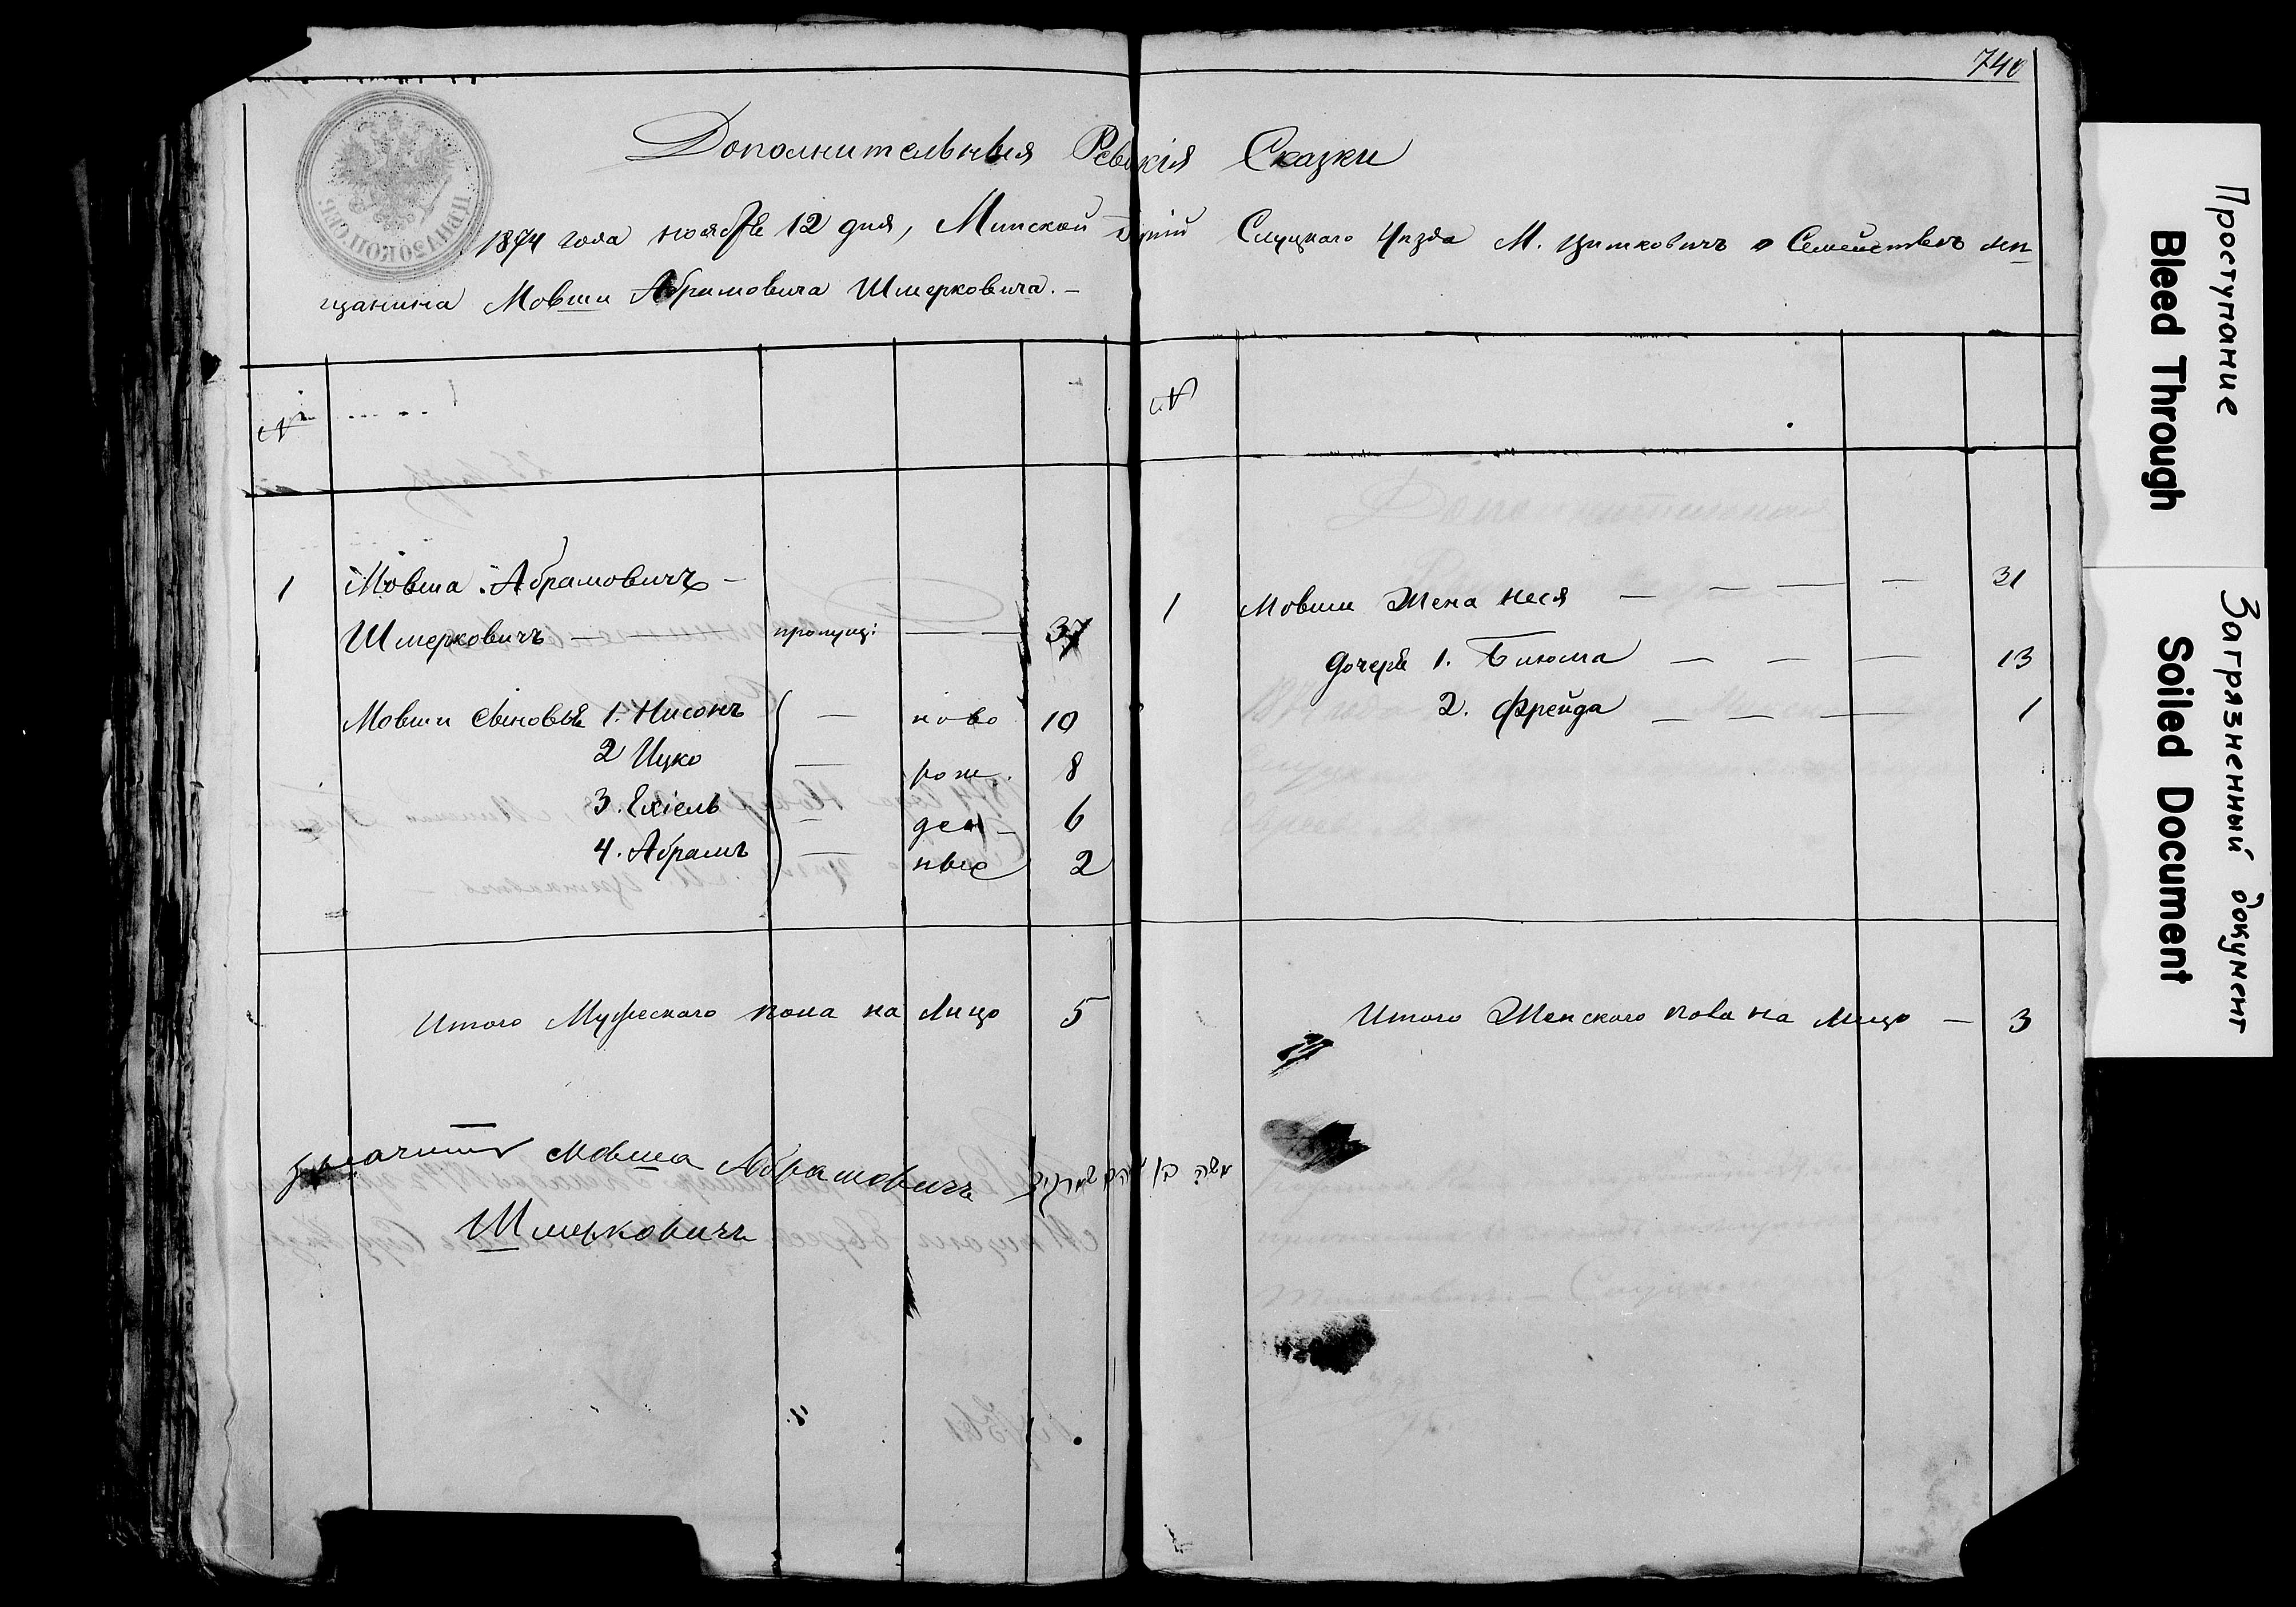 740
Дополнительныя Ревизкія Сказки
1874 года ноября 12 дня, Минской Губніи Слуцкаго Уѣзда М. Цитковичъ о Семействѣ мѣ
щанина Мовши Абрамовича Шмерковича. —
№
1 Мовша Абрамовичъ —
Шмерковичъ — пропущ: — 37
Мовши сыновья 1. Нисонъ — ново 10
2 Ицко — рож. 8
3. Ехіель — ден — 6
4. Абрамъ — ные 2
Итого Мужескаго пола на Лицо 5
№
1 Мовши Жена Неся — — — — 31
дочеря 1. Блюма — — — 13
2. Фрейда — — — 1
Итого Женскаго пола на Лицо — 3
значитъ Мовша Абрамовичъ
Шмерковичъ
משה בן
Проступание
Bleed Through
Загрязненный документ
Soiled Document